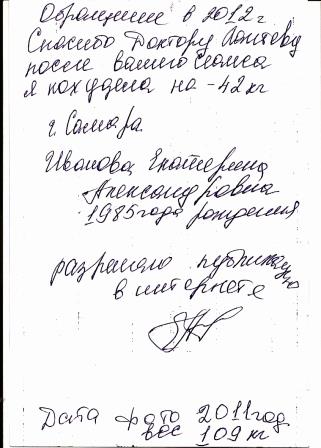 Обращение в 2012 г
Спасибо Доктору Лаптеву
после вашего сеанса
я похудела на -42 кг
г. Самара.
Иванова Екатерина
Александровна
1985 года рождения
разрешаю публикацию
в интернете
Дата фото 2011 год
вес 109 кг